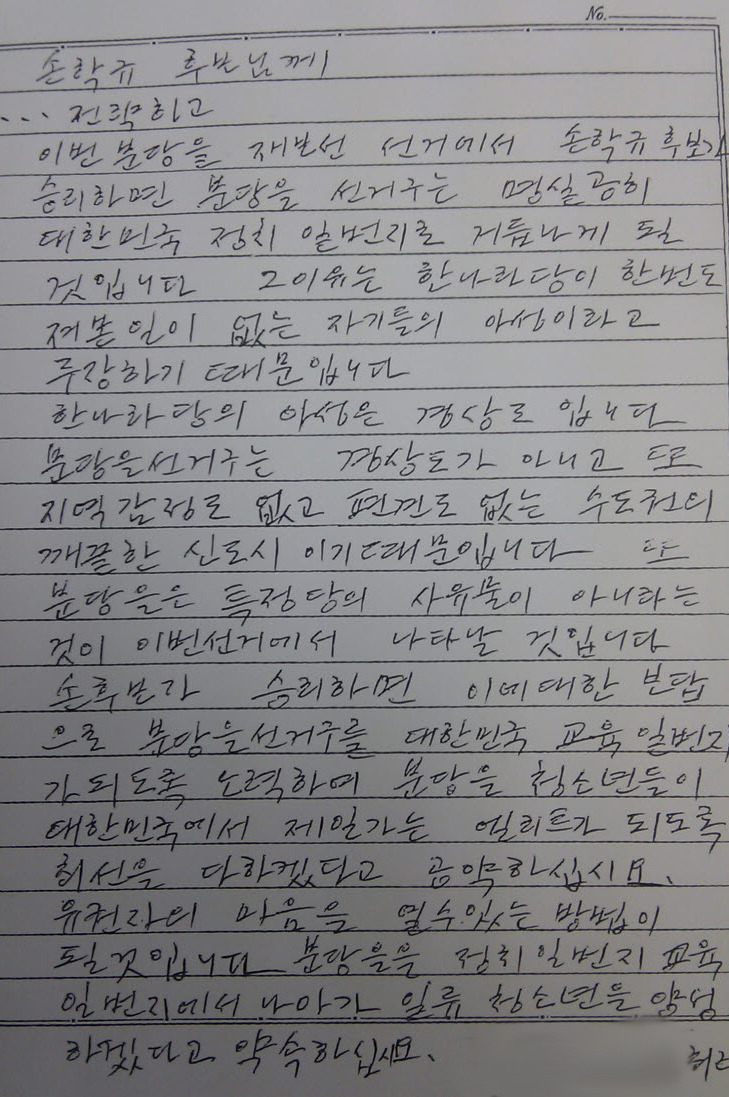 No.
손학규 후보님께
... 전략하고
이번 분당을 재보선 선거에서 손학규 후보가
승리하면 분당을 선거구는 명실공히
대한민국 정치 일번지로 거듭나게 될
것입니다 그이유는 한나라당이 한번도
져본일이 없는 자기들의 아성이라고
주장하기 때문입니다
한나라당의 아성은 경상도 입니다
분당을선거구는 경상도가 아니고 또
지역감정도 없고 편견도 없는 수도권의
깨끝한 신도시 이기때문입니다 또
분당을은 특정당의 사유물이 아니라는
것이 이번선거에서 나타날 것입니다
손후보가 승리하면 이에대한 보답
으로 분당을선거구를 대한민국 교육일번지
가되도록 노력하여 분당을 청소년들이
대한민국에서 제일가는 엘리트가 되도록
최선을 다하겠다고 공약하십시요.
유권자의 마음을 열수있는 방법이
될것입니다 분당을을 정치일번지 교육
일번지에서 나아가 일류 청소년을 양성
하겠다고 약속하십시요.